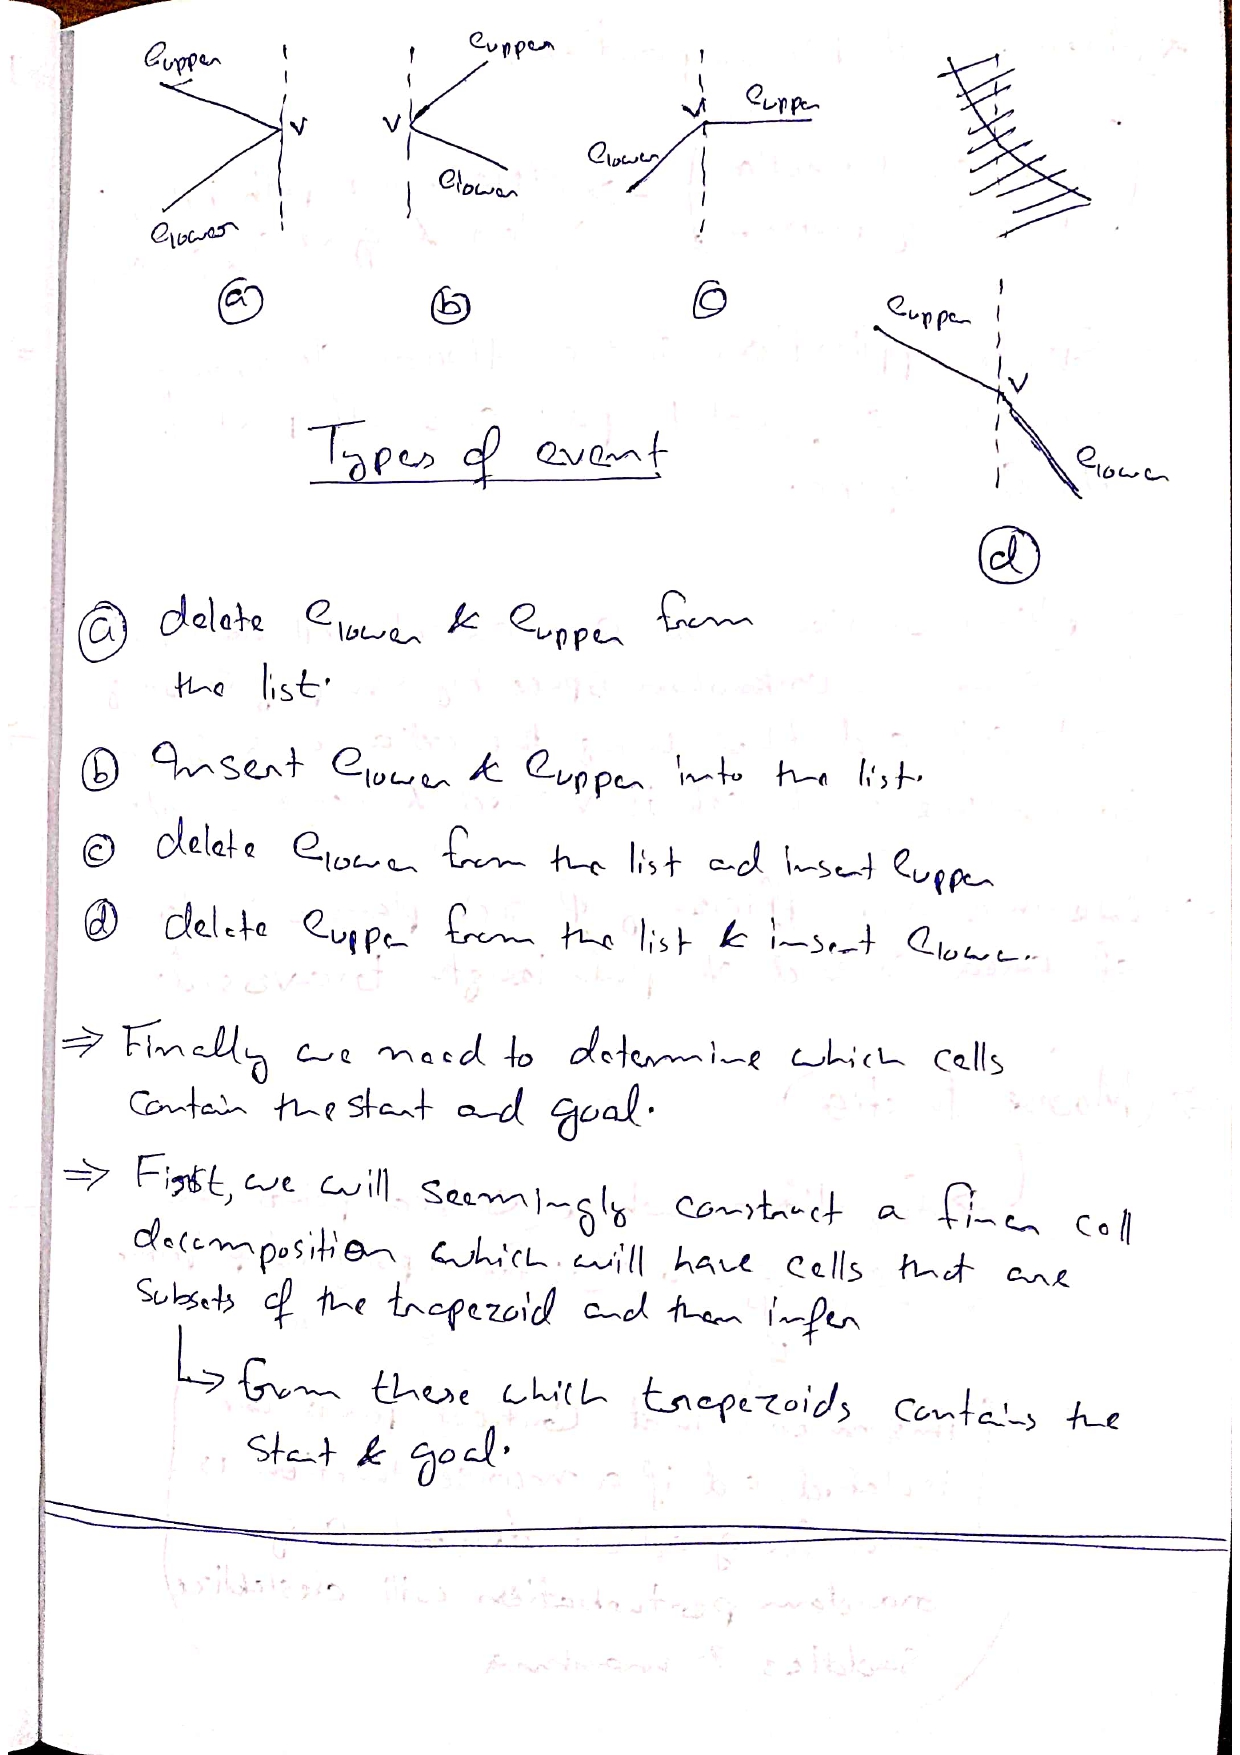 eupper
eupper
eupper
V
V
V
elower
elower
elower
(a)
(b)
(c)
eupper
V
elower
Types of event
(d)
(a) delete elower & eupper from
the list.
(b) Insert elower & eupper into the list.
(c) delete elower from the list and insert eupper
(d) delete eupper from the list & insert elower.
⇒ Finally we need to determine which cells
contain the start and goal.
⇒ First, we will seemingly construct a finer cell
decomposition which will have cells that are
subsets of the trapezoid and then infer
↳ from these which trapezoids contains the
start & goal.